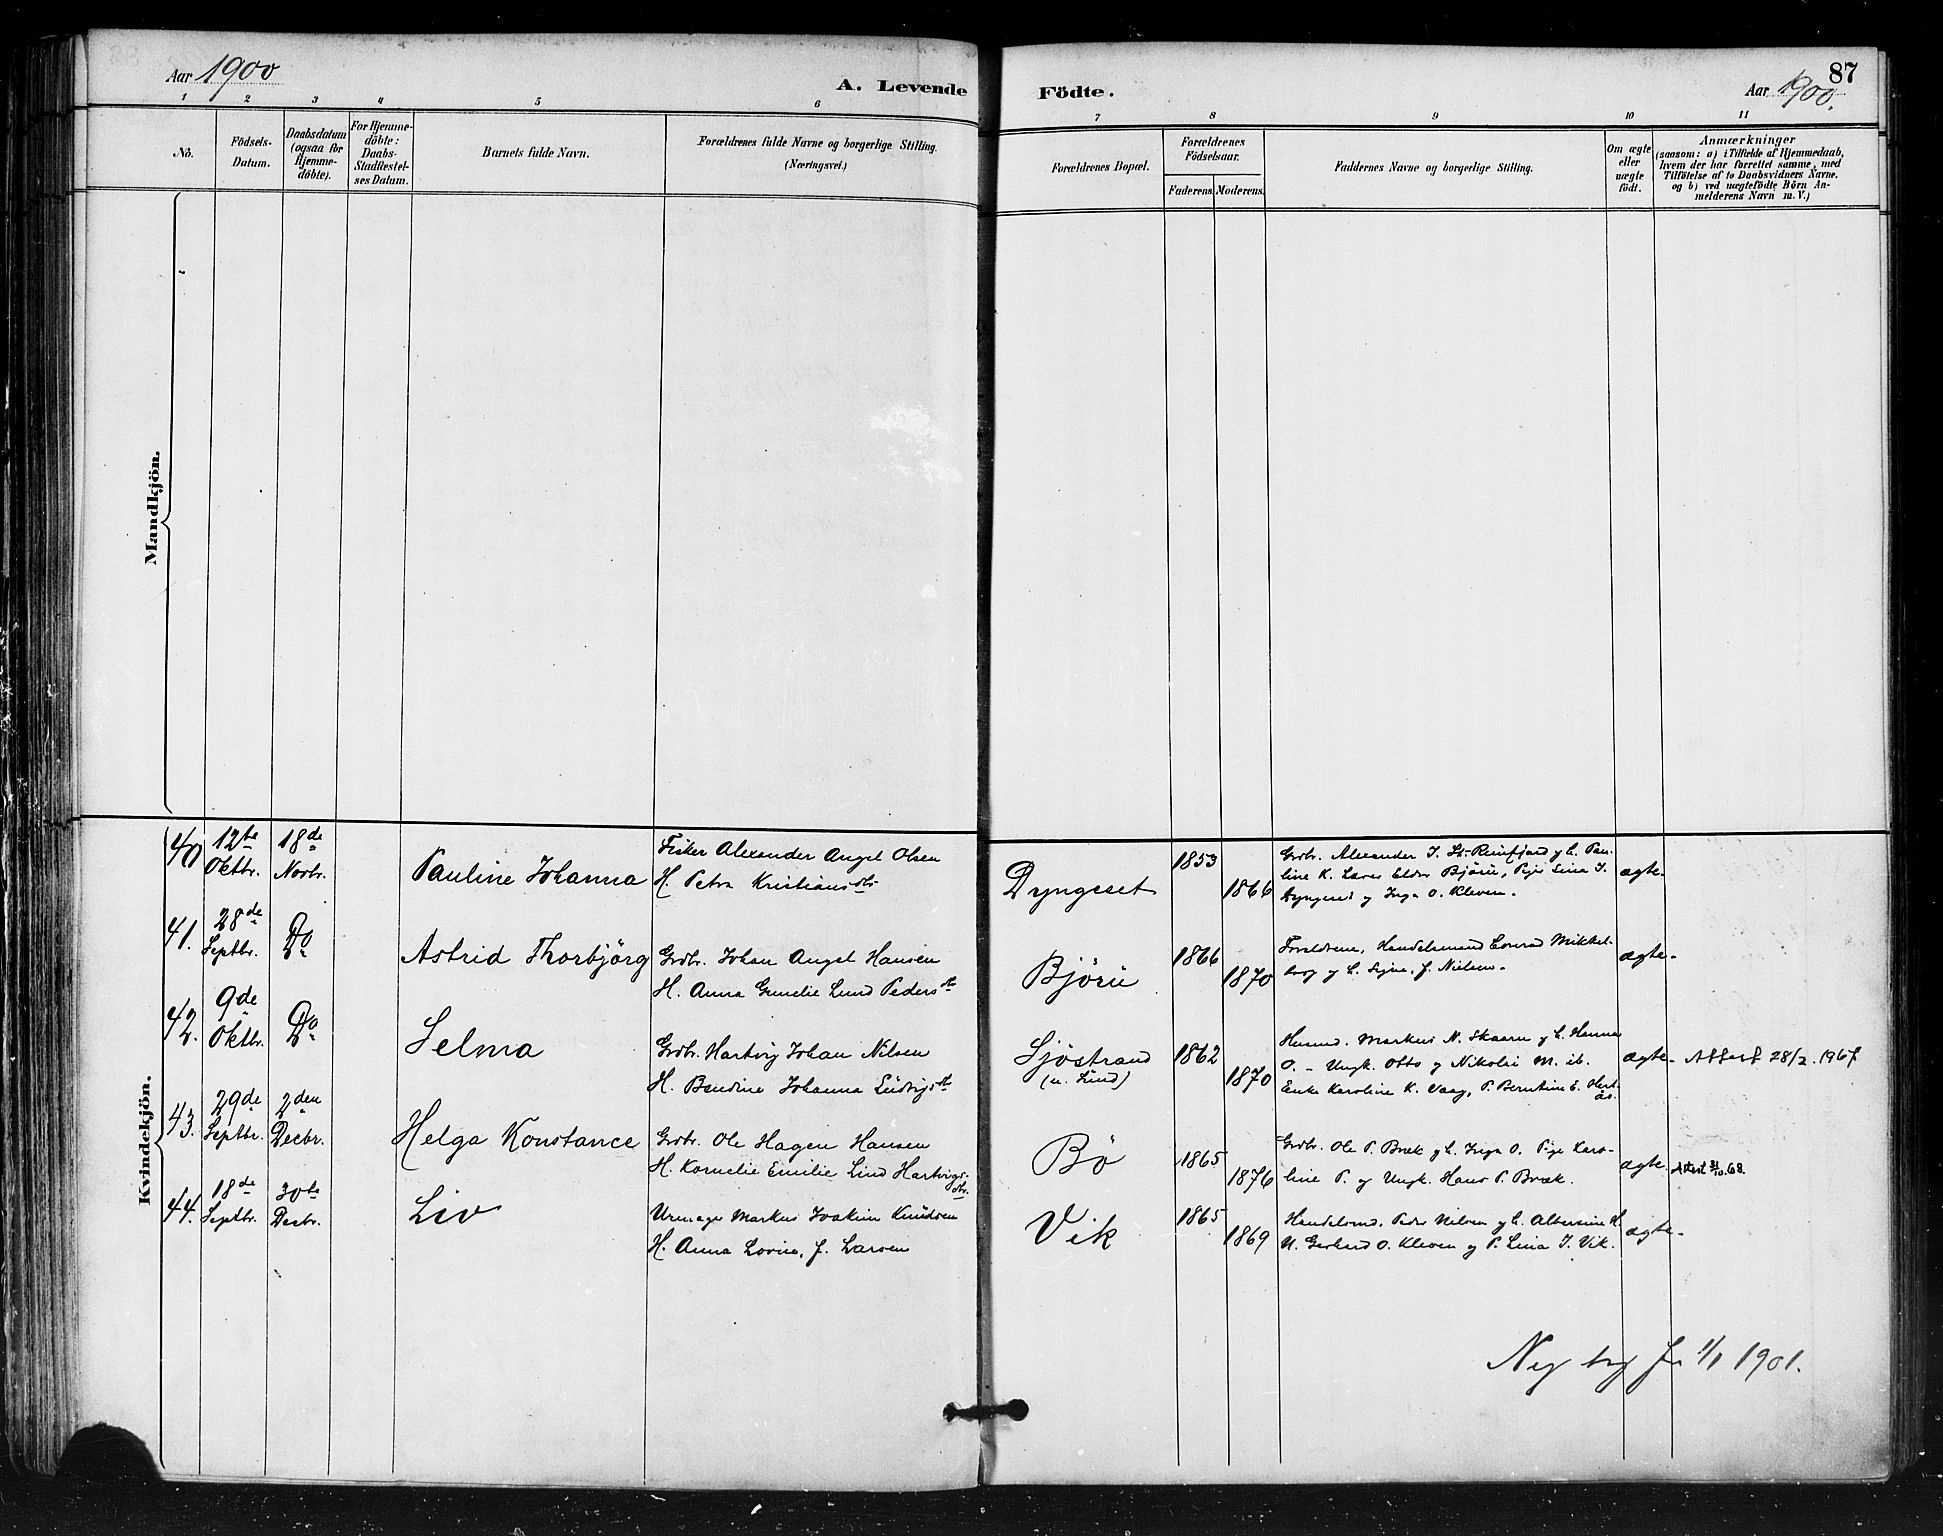 Aar 1900
A. Levende
Födte.
87
Aar 1900.
1 2 3 4 5 6 7 8 9 10 11
No.
Födsels-
Datum.
Daabsdatum
(ogsaa for
Hjemme-
döbte).
For Hjemme-
döbte:
Daabs-
Stadfæstel-
ses Datum.
Barnets fulde Navn.
Forældrenes fulde Navne og borgerlige Stilling.
(Næringsvei.)
Forældrenes Bopæl.
Forældrenes
Födselsaar.
Faderens. Moderens.
Faddernes Navne og borgerlige Stilling.
Om ægte
eller
uægte
födt.
Anmærkninger
(saasom: a) i Tilfælde af Hjemmedaab,
hvem der har forrettet samme, med
Tilföielse af to Daabsvidners Navne.
og b) ved uægtefödte Börn An-
melderens Navn m. V.)
Mandkjön.
Kvindekjön.
40 12te Oktbr. 18de Novbr. Pauline Johanna
Fisker Alexander Angel Olsen
H. Petra Kristiansdtr
Dyngeset 1853 1866
Grdbr. Alexander J. Reinfjord og h. Pau-
line K. Lærer Elder Björü, Pige Lina J.
Dyngeset og Inga O. Kleven.
ægte.
41. 28de Septbr. Do Astrid Thorbjörg
Grdbr. Johan Angel Hansen
H. Anna Lund Pedersdt
Björu 1866 1870
Forældrene, Handelsmand Conrad Mikkel-
borg og h. Signe, f. Nielsen.
ægte.
42. 9de Oktbr. Do Selma
Grdbr. Hartvig Johan Nilsen
H. Bendine Johanna Ludvigsdt
Sjöstrand 1862 1870
(u. Lund)
Husmd. Markus N. Skaarn og h. Hanna
O. - Ungk. Otto og Nikolai M. ib.
Enke Karoline K. Vaag, P. Berntine E.
ægte. Attest 28/2. 1967
43. 29de Septbr. 2den Decbr. Helga Konstance
Grdbr. Ole Hagen Hansen
H. Kornelie Emilie Lind Hartvigs-
dtr.
Bö 1865 1876
Grdbr. Ole P. Bræk og h. Inga O. Pige Karo-
line P. og Ungk. Hans P. Bræk.
ægte. Attest 68.
44. 18de Septbr. 30te Decbr. Liv
Urmager Markus Joakim Knudsen
H. Anna Lovise, f. Larsen
Vik 1865 1869
Handelsmd. Peder Nilsen og h. Albertine H.
U. Gerhard O. Kleven og P. Lina J. Vik.
ægte.
Ny bog fra 1/1 1901.